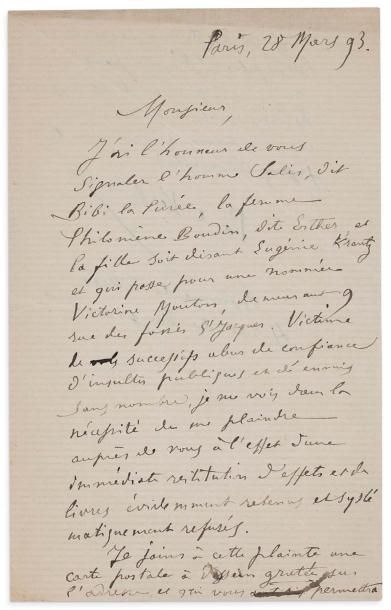 Paris, 28 Mars 93.
Monsieur,
J'ai l'honneur de vous
signaler l'homme Salis, dit
Bibi la Purée, la femme
Philomène Boudin, dite Esther, et
la fille soit disant Eugénie Krantz
et qui passe pour une nommée
Victorine Mouton, demeurant 9
rue des fossés St Jacques. Victime
de successifs abus de confiance
d'insultes publiques et de ennuis
sans nombre, je me vois dans la
nécessité de me plaindre
auprès de vous à l'effet d'une
immédiate restitution d'effets et de
livres évidemment retenus et systé
matiquement refusés.
Je joins à cette plainte une
carte postale à dessein grattée sur
l'adresse et qui vous permettra